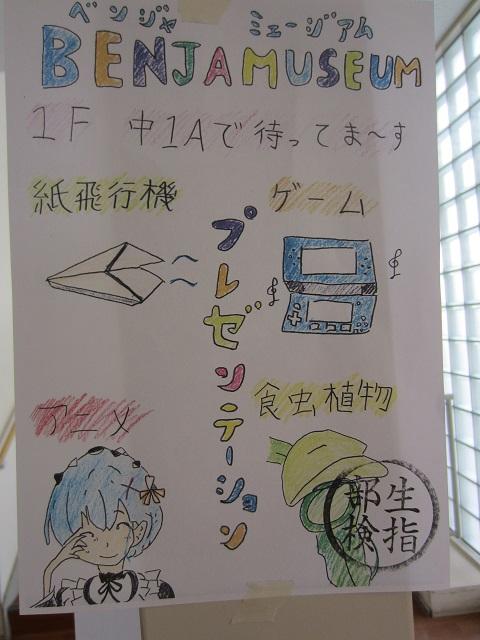 ベンジャ ミュージアム
BENJAMUSEUM
1F 中1Aで待ってま〜す
紙飛行機
ゲーム
プレゼンテーション
アニメ
食虫植物
生指
部検